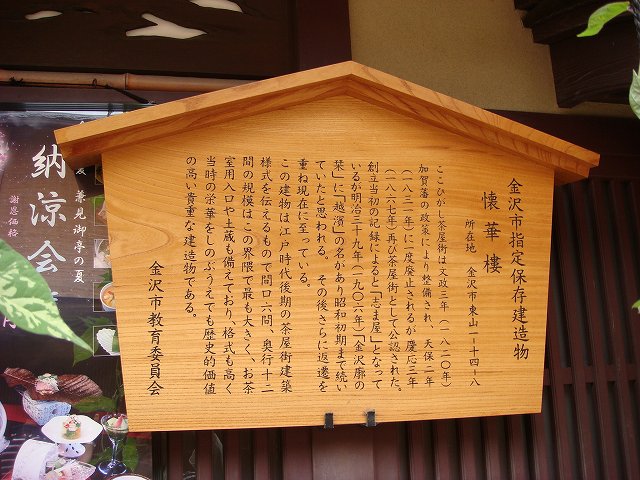 金沢市指定保存建造物
懐華樓
所在地 金沢市東山一ー十四ー八
ここひがし茶屋街は文政三年(一八二〇年)
加賀藩の政策により整備され、天保二年
(一八三一年)にて度廃止されるが慶応三年
(一八六七年)再び茶屋街として公認された。
創立当初の記録によると「志ま屋」となって
いるが明治三十九年(一九〇六年)「金沢廓の
栞」に「越濱」の名があり昭和初期まで続い
ていたと思われる。その後さらに返遷を
重ね現在に至っている。
この建物は江戸時代後期の茶屋街建築
様式を伝えるもので間口六間、奥行十二
間の規模はこの界隈で最も大きく、お茶
室用入口や土蔵も備えており、格式も高く
当時の栄華をしのぶうえでも歴史的価値
の高い貴重な建造物である。
金沢市教育委員会
兼見御亭の夏
納涼会
謝恩価格